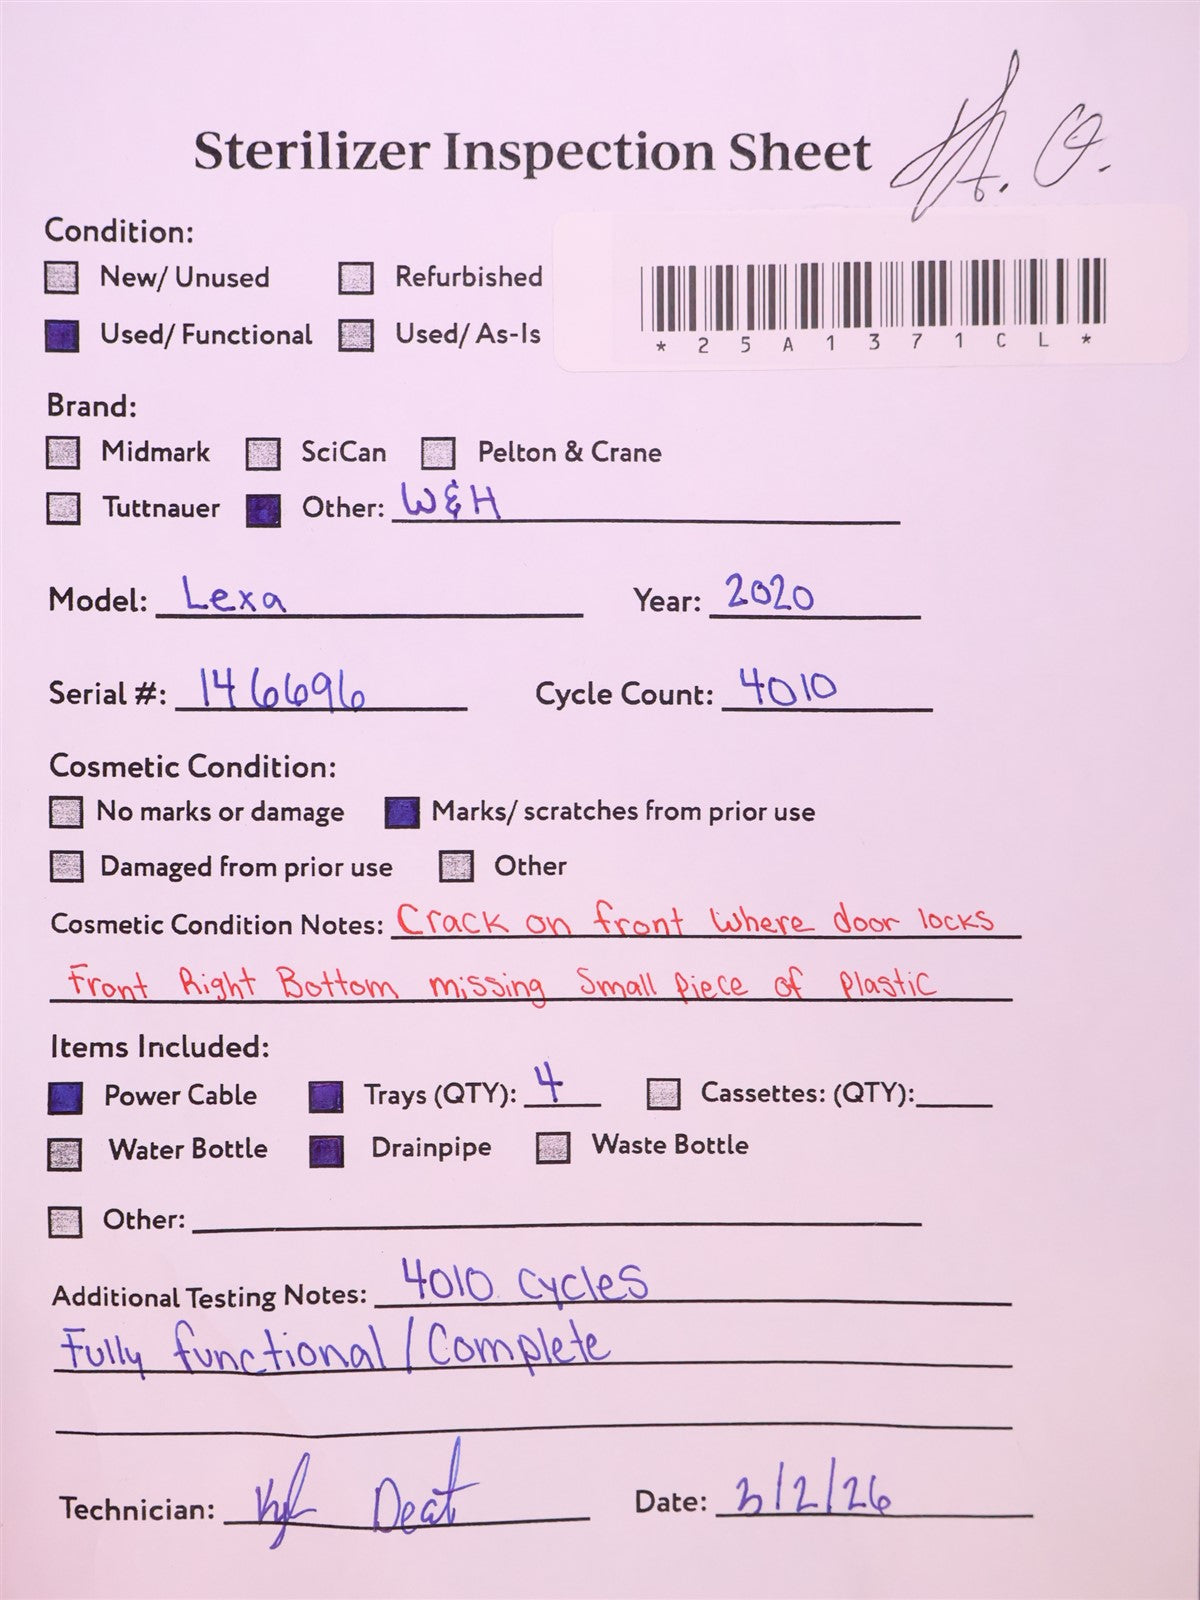 Sterilizer Inspection Sheet
Condition:
New/ Unused Refurbished
Used/ Functional Used/ As-Is
*25A1371CL*
Brand:
Midmark SciCan Pelton & Crane
Tuttnauer Other: W&H
Model: Lexa Year: 2020
Serial #: 146696 Cycle Count: 4010
Cosmetic Condition:
No marks or damage Marks/ scratches from prior use
Damaged from prior use Other
Cosmetic Condition Notes: Crack on front where door locks
Front Right Bottom missing Small piece of plastic
Items Included:
Power Cable Trays (QTY): 4 Cassettes: (QTY):
Water Bottle Drainpipe Waste Bottle
Other:
Additional Testing Notes: 4010 cycles
Fully functional / Complete
Technician: Date: 3/2/26